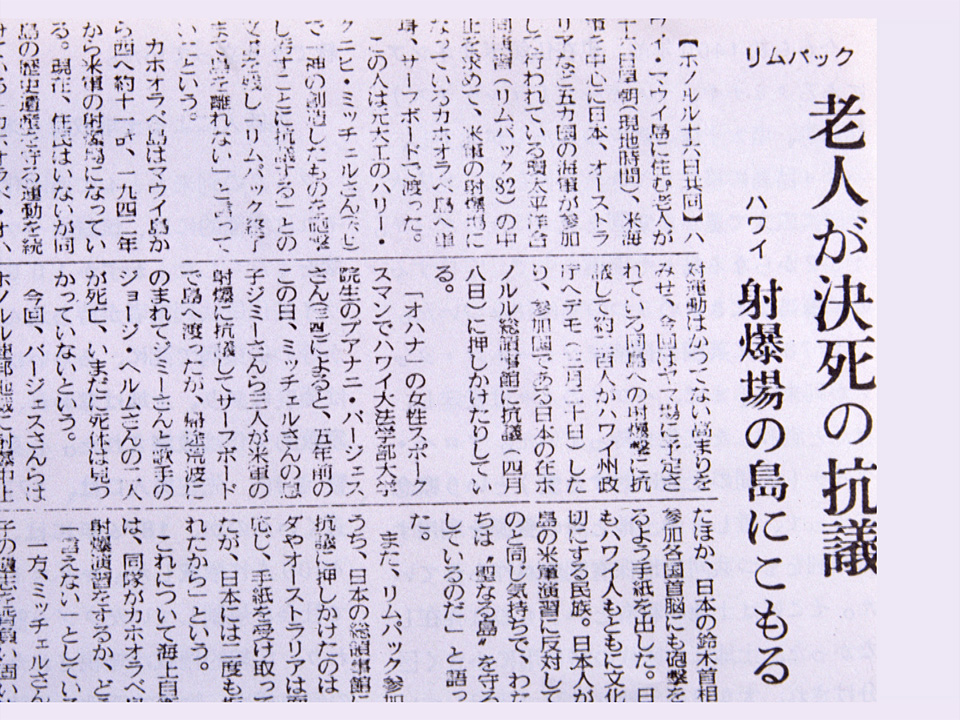 リムパック
老人が決死の抗議
ハワイ 射爆場の島にこもる
【ホノルル十六日共同】ハ
ワイ・マウイ島に住む老人が
十日早朝（現地時間）、米海
軍中心に日本、オーストラ
リアなど五カ国の海軍が参加
して行われている環太平洋合
同演習（リムパック82）の中
止を求めて、米軍の射爆場に
なっているカホオラベ島へ単
身、サーフボードで渡った。
この人は元大工のハリー・
クニヒ・ミッチェルさん
で「神の創造したものを砲撃
し汚すことに抗議する」との
文書を残し「リムパック終了
まで島を離れない」と言って
いたという。
カホオラベ島はマウイ島か
ら西へ約十一㌔、一九四二年
から米軍の射爆場になってい
る。現在、住民はいないが同
島の歴史遺産を守る運動を続
対運動はかつてない高まりを
みせ、今回はヤマ場に予定さ
れている同島への射爆撃に抗
議して約一百人がハワイ州政
庁へデモ（二月二十日）した
り、参加国である日本の在ホ
ノルル総領事館に抗議（四月
八日）に押しかけたりしてい
る。
「オハナ」の女性スポーク
スマンでハワイ大法学部大学
院生のプアナニ・バージェス
さんによると、五年前の
この日、ミッチェルさんの息
子ジミーさんら三人が米軍の
射爆に抗議してサーフボード
で島へ渡ったが、帰途荒波に
のまれてジミーさんと歌手の
ジョージ・ヘルムさんの二人
が死亡、いまだに死体は見つ
かっていないという。
今回、バージェスさんらは
たほか、日本の鈴木首相
参加各国首脳にも砲撃を
るよう手紙を出した。「日
もハワイ人もともに文化
切にする民族。日本人が
島の米軍演習に反対して
のと同じ気持ちで、わた
ちは〝聖なる島〟を守る
しているのだ」と語っ
た。
また、リムパック参加
うち、日本の総領事館に
抗議に押しかけたのは
ダやオーストラリアは面
応じ、手紙を受け取って
たが、日本には二度も
れたから」という。
これについて海上自
は、同隊がカホオラベ
射爆演習をするか、ど
「言えない」としてい
一方、ミッチェルさん